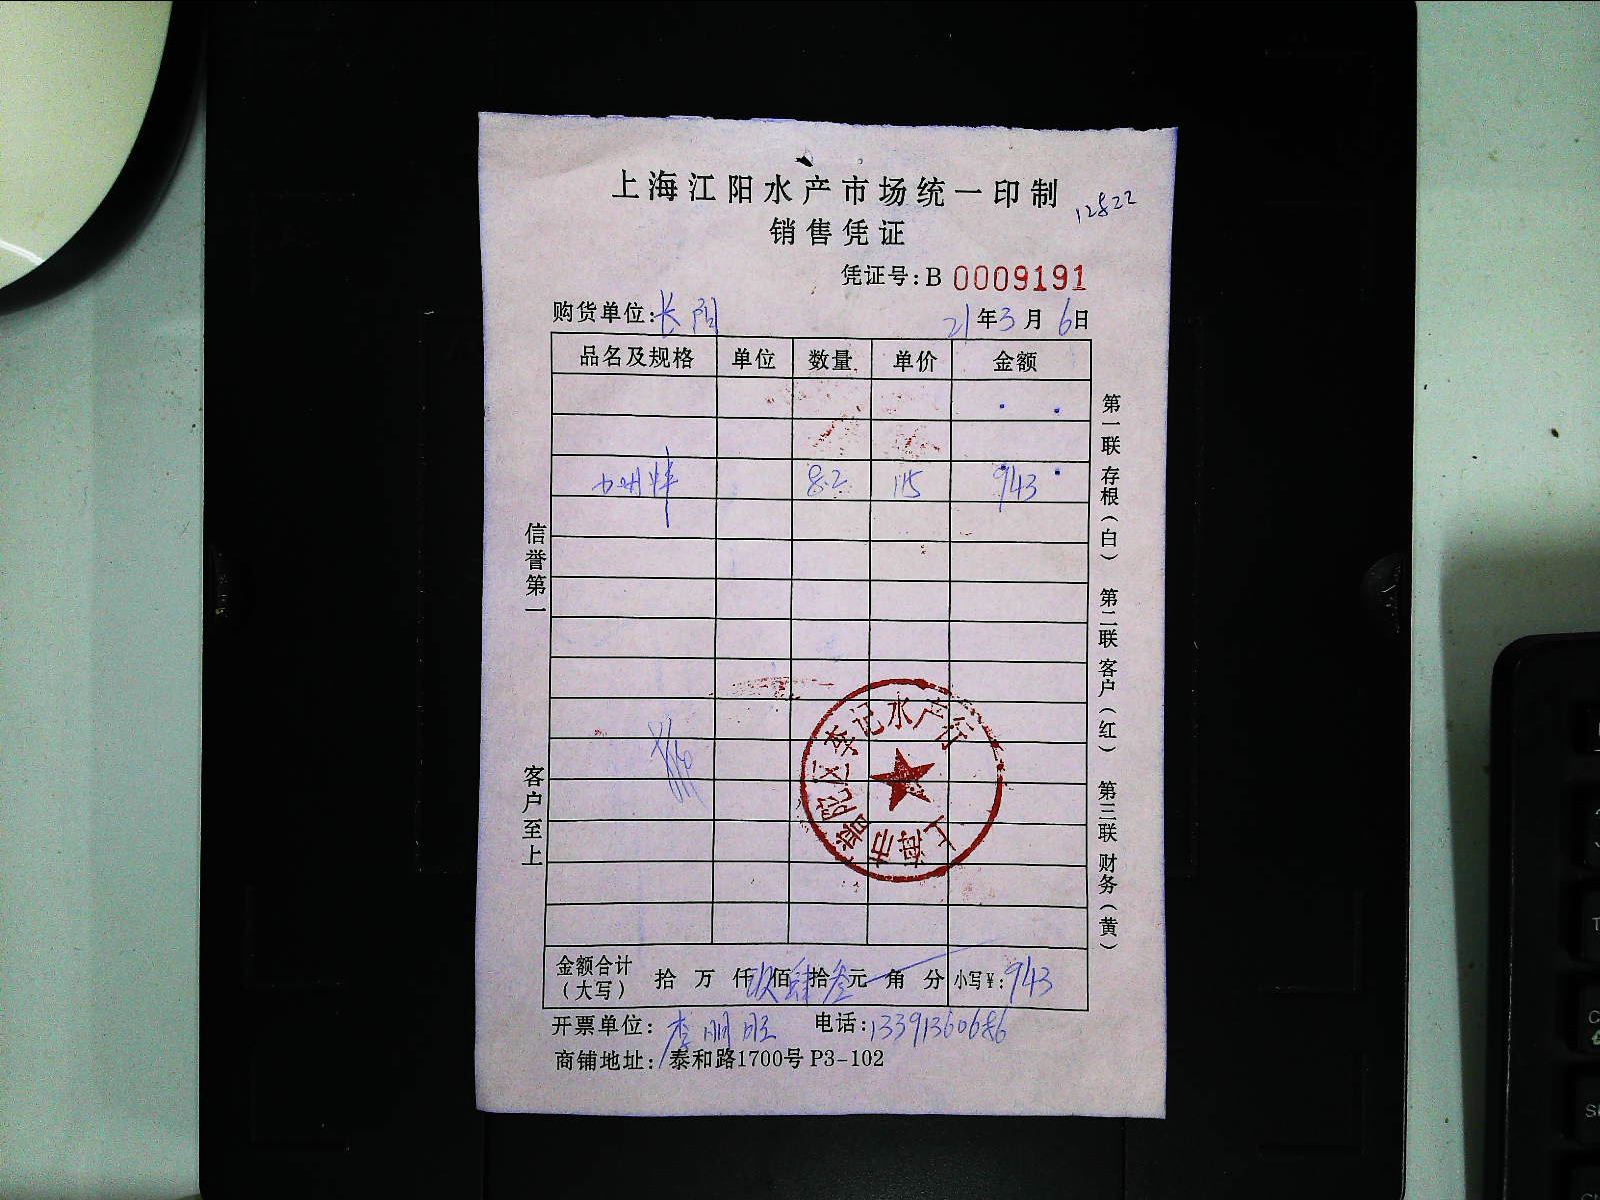 上海江阳水产市场统一印制
12822
销售凭证
凭证号:B 0009191
购货单位:长阳 21年3月6日
品名及规格 单位 数量 单价 金额
8.2 115 943
信誉第一
客户至上
第一联 存根(白) 第二联 客户(红) 第三联 财务(黄)
上海市普陀区李记水产行
金额合计(大写) 拾 万 仟玖佰肆拾叁元 角 分 小写¥:943
开票单位:李朋旺 电话:13391360686
商铺地址:泰和路1700号 P3-102